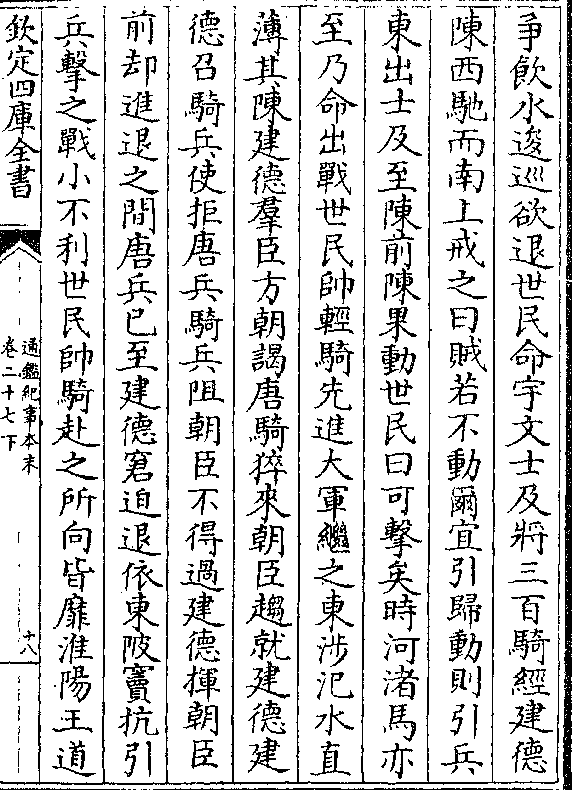 争飲水逡巡欲退世民命宇文士及將三百騎經建德
陳西馳而南上戒之曰賊若不動爾宜引歸動則引兵
東出士及至陳前陳果動世民曰可擊矣時河渚馬亦
至乃命出戰世民帥輕騎先進大軍繼之東涉汜水直
薄其陳建德羣臣方朝謁唐騎猝來朝臣趨就建德建
德召騎兵使拒唐兵騎兵阻朝臣不得過建德揮朝臣
前却進退之間唐兵已至建德窘迫退依東陂竇抗引
兵擊之戰小不利世民帥騎赴之所向皆靡淮陽王道
欽定四庫全書
通鑑紀事本末
卷二十七下
十八